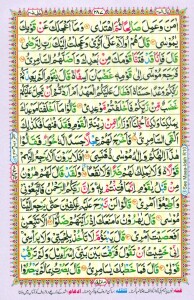 اٰمَنَ وَعَمِلَ صَالِحًا ثُمَّ اهْتَدٰى وَمَآ اَعْجَلَكَ عَنْ قَوْمِكَ
يٰمُوْسٰى قَالَ هُمْ اُولَآءِ عَلٰٓى اَثَرِيْ وَعَجِلْتُ اِلَيْكَ رَبِّ لِتَرْضٰى
قَالَ فَاِنَّا قَدْ فَتَنَّا قَوْمَكَ مِنْۢ بَعْدِكَ وَاَضَلَّهُمُ السَّامِرِيُّ
فَرَجَعَ مُوْسٰٓى اِلٰى قَوْمِهٖ غَضْبَانَ اَسِفًا قَالَ يٰقَوْمِ اَلَمْ يَعِدْكُمْ
رَبُّكُمْ وَعْدًا حَسَنًا اَفَطَالَ عَلَيْكُمُ الْعَهْدُ اَمْ اَرَدْتُّمْ اَنْ يَّحِلَّ
عَلَيْكُمْ غَضَبٌ مِّنْ رَّبِّكُمْ فَاَخْلَفْتُمْ مَّوْعِدِيْ قَالُوْا مَآ اَخْلَفْنَا مَوْعِدَكَ
بِمَلْكِنَا وَلٰكِنَّا حُمِّلْنَآ اَوْزَارًا مِّنْ زِيْنَةِ الْقَوْمِ فَقَذَفْنٰهَا فَكَذٰلِكَ
اَلْقَى السَّامِرِيُّ فَاَخْرَجَ لَهُمْ عِجْلًا جَسَدًا لَّهٗ خُوَارٌ فَقَالُوْا
هٰذَآ اِلٰهُكُمْ وَاِلٰهُ مُوْسٰى فَنَسِيَ اَفَلَا يَرَوْنَ اَلَّا يَرْجِعُ اِلَيْهِمْ
قَوْلًا وَّلَا يَمْلِكُ لَهُمْ ضَرًّا وَّلَا نَفْعًا وَلَقَدْ قَالَ لَهُمْ هٰرُوْنُ
مِنْ قَبْلُ يٰقَوْمِ اِنَّمَا فُتِنْتُمْ بِهٖ وَاِنَّ رَبَّكُمُ الرَّحْمٰنُ فَاتَّبِعُوْنِيْ
وَاَطِيْعُوْٓا اَمْرِيْ قَالُوْا لَنْ نَّبْرَحَ عَلَيْهِ عٰكِفِيْنَ حَتّٰى يَرْجِعَ اِلَيْنَا
مُوْسٰى قَالَ يٰهٰرُوْنُ مَا مَنَعَكَ اِذْ رَاَيْتَهُمْ ضَلُّوْٓا اَلَّا تَتَّبِعَنِ
اَفَعَصَيْتَ اَمْرِيْ قَالَ يَبْنَؤُمَّ لَا تَاْخُذْ بِلِحْيَتِيْ وَلَا بِرَاْسِيْ
اِنِّيْ خَشِيْتُ اَنْ تَقُوْلَ فَرَّقْتَ بَيْنَ بَنِيْٓ اِسْرَآءِيْلَ وَلَمْ تَرْقُبْ
قَوْلِيْ قَالَ فَمَا خَطْبُكَ يٰسَامِرِيُّ قَالَ بَصُرْتُ بِمَا لَمْ يَبْصُرُوْا